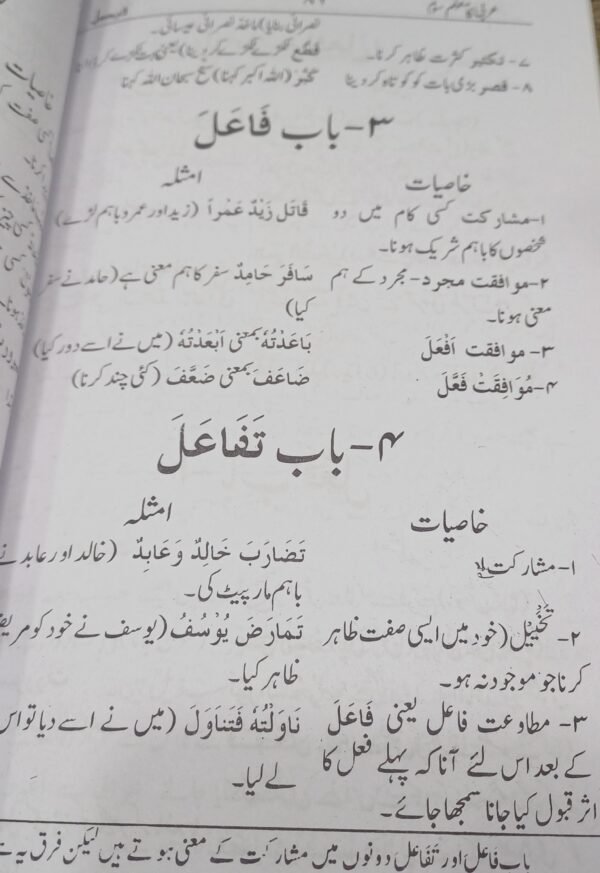 عربی کا معلم سوم
نصرانی بنایا) ماخذ نصرانی عیسائی۔
۷- تکثیر کثرت ظاہر کرنا۔ قَطَّعَ ٹکڑے ٹکڑے کر دینا)
۸- قصر بڑی بات کو کوتاہ کر دینا کَبَّرَ (اللہ اکبر کہنا) سَبَّحَ سبحان اللہ کہنا
۳- باب فَاعَلَ
خاصیات امثلہ
۱- مشارکت کسی کام میں دو قَاتَلَ زَیْدٌ عَمْراً (زید اور عمرو باہم لڑے)
شخصوں کا باہم شریک ہونا۔
۲- موافقت مجرد- مجرد کے ہم سَافَرَ حَامِدٌ سفر کا ہم معنی ہے (حامد نے سفر
معنی ہونا۔ کیا)
۳- موافقت اَفْعَلَ بَاعَدْتُهٗ بمعنی اَبْعَدْتُهٗ (میں نے اسے دور کیا)
۴- مُوَافِقَتْ فَعَّلَ ضَاعَفَ بمعنی ضَعَّفَ (کئی چند کرنا)
۴- باب تَفَاعَلَ
خاصیات امثلہ
۱- مشارکت تَضَارَبَ خَالِدٌ وَعَابِدٌ (خالد اور عابد نے
باہم مار پیٹ کی۔
۲- تخییل (خود میں ایسی صفت ظاہر تَمَارَضَ یُوْسُفُ (یوسف نے خود کو مریض
کرنا جو موجود نہ ہو۔ ظاہر کیا۔
۳- مطاوعت فاعل یعنی فَاعَلَ نَاوَلْتُهٗ فَتَنَاوَلَ (میں نے اسے دیا تو اس
کے بعد اس لئے آنا کہ پہلے فعل کا لے لیا۔
اثر قبول کیا جانا سمجھا جائے۔
باب فَاعَلَ اور تَفَاعَلَ دونوں میں مشارکت کے معنی ہوتے ہیں لیکن فرق یہ ہے